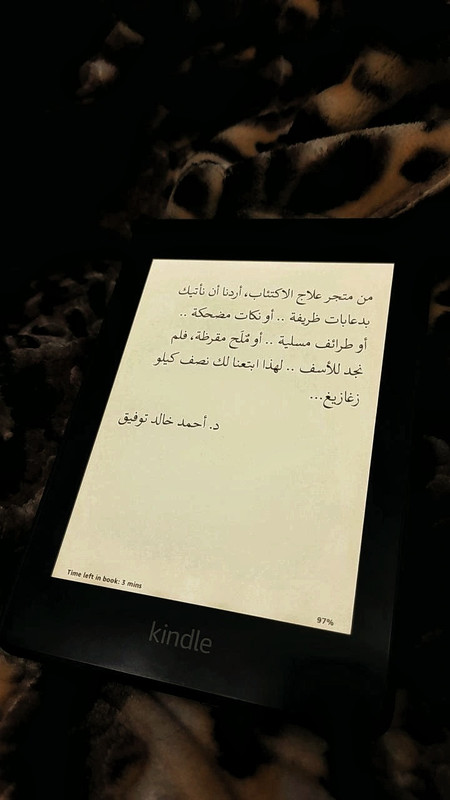 من متجر علاج الاكتئاب، أردنا أن نأتيك
بدعابات ظريفة .. أو نكات مضحكة ..
أو طرائف مسلية .. أو مُلَح مقرظة، فلم
نجد للأسف .. لهذا ابتعنا لك نصف كيلو
زغازيغ...
د. أحمد خالد توفيق
Time left in book: 3 mins
97%
kindle